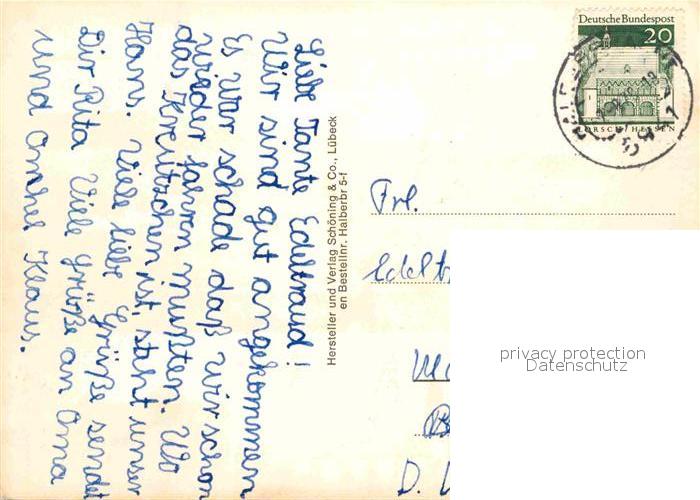 Liebe Tante Edeltraud!
Wir sind gut angekommen
Es war schade daß wir schon
wieder fahren mußten. Wo
das Kreutzchen ist, steht unser
Haus. Viele liebe Grüße sendet
Dir Rita Viele Grüße an Oma
und Onkel Klaus.
Hersteller und Verlag Schöning & Co., Lübeck
en Bestellnr. Halberbr 5-f
Deutsche Bundespost
20
LORSCH/HESSEN
Frl.
Edelt
privacy protection
Datenschutz
D.